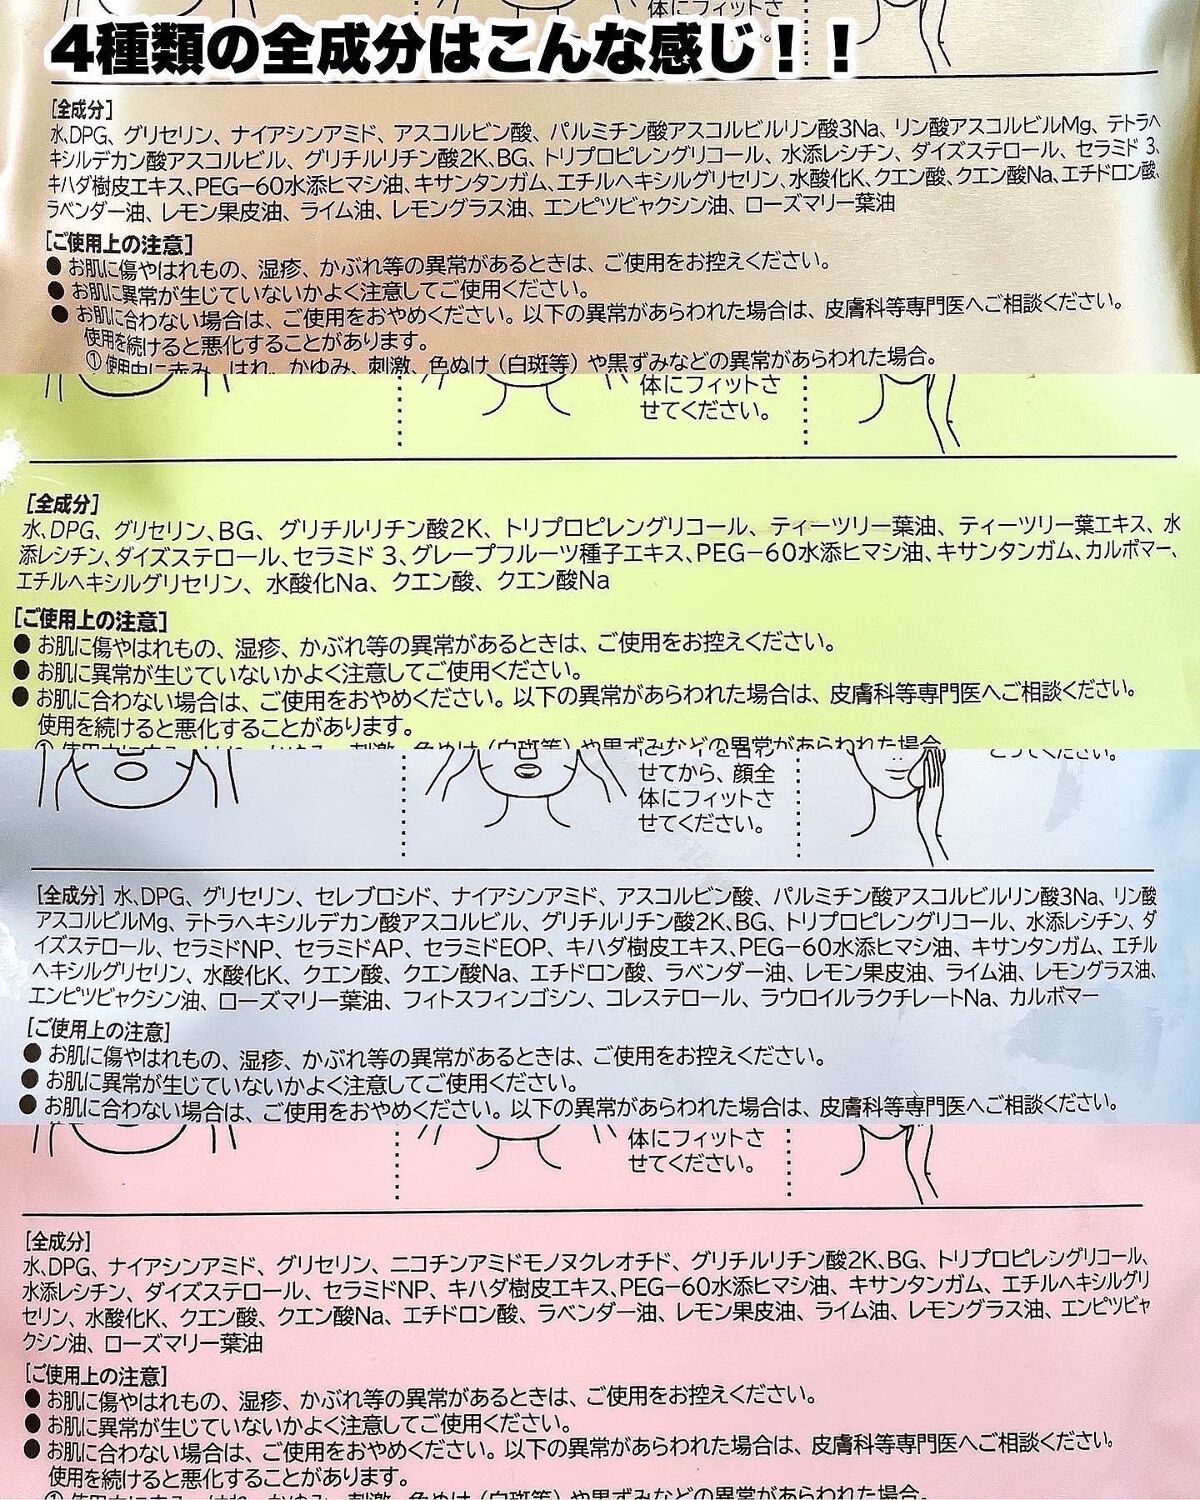 体にフィットさ
4種類の全成分はこんな感じ！！
[全成分]
水、DPG、グリセリン、ナイアシンアミド、アスコルビン酸、パルミチン酸アスコルビルリン酸3Na、リン酸アスコルビルMg、テトラヘ
キシルデカン酸アスコルビル、グリチルリチン酸2K、BG、トリプロピレングリコール、水添レシチン、ダイズステロール、セラミド 3、
キハダ樹皮エキス、PEG-60水添ヒマシ油、キサンタンガム、エチルヘキシルグリセリン、水酸化K、クエン酸、クエン酸Na、エチドロン酸、
ラベンダー油、レモン果皮油、ライム油、レモングラス油、エンピツビャクシン油、ローズマリー葉油
[ご使用上の注意]
● お肌に傷やはれもの、湿疹、かぶれ等の異常があるときは、ご使用をお控えください。
● お肌に異常が生じていないかよく注意してご使用ください。
● お肌に合わない場合は、ご使用をおやめください。以下の異常があらわれた場合は、皮膚科等専門医へご相談ください。
使用を続けると悪化することがあります。
① 使用中に赤み、はれ、かゆみ、刺激、色ぬけ（白斑等）や黒ずみなどの異常があらわれた場合。
体にフィットさ
せてください。
[全成分]
水、DPG、グリセリン、BG、グリチルリチン酸2K、トリプロピレングリコール、ティーツリー葉油、ティーツリー葉エキス、水
添レシチン、ダイズステロール、セラミド 3、グレープフルーツ種子エキス、PEG-60水添ヒマシ油、キサンタンガム、カルボマー、
エチルヘキシルグリセリン、水酸化Na、クエン酸、クエン酸Na
[ご使用上の注意]
● お肌に傷やはれもの、湿疹、かぶれ等の異常があるときは、ご使用をお控えください。
● お肌に異常が生じていないかよく注意してご使用ください。
● お肌に合わない場合は、ご使用をおやめください。以下の異常があらわれた場合は、皮膚科等専門医へご相談ください。
使用を続けると悪化することがあります。
① 使用中に赤み、はれ、かゆみ、刺激、色ぬけ（白斑等）や黒ずみなどの異常があらわれた場合
せてから、顔全
体にフィットさ
せてください。
とってください。
[全成分] 水、DPG、グリセリン、セレブロシド、ナイアシンアミド、アスコルビン酸、パルミチン酸アスコルビルリン酸3Na、リン酸
アスコルビルMg、テトラヘキシルデカン酸アスコルビル、グリチルリチン酸2K、BG、トリプロピレングリコール、水添レシチン、ダ
イズステロール、セラミドNP、セラミドAP、セラミドEOP、キハダ樹皮エキス、PEG-60水添ヒマシ油、キサンタンガム、エチル
ヘキシルグリセリン、水酸化K、クエン酸、クエン酸Na、エチドロン酸、ラベンダー油、レモン果皮油、ライム油、レモングラス油、
エンピツビャクシン油、ローズマリー葉油、フィトスフィンゴシン、コレステロール、ラウロイルラクチレートNa、カルボマー
[ご使用上の注意]
● お肌に傷やはれもの、湿疹、かぶれ等の異常があるときは、ご使用をお控えください。
● お肌に異常が生じていないかよく注意してご使用ください。
● お肌に合わない場合は、ご使用をおやめください。以下の異常があらわれた場合は、皮膚科等専門医へご相談ください。
体にフィットさ
せてください。
[全成分]
水、DPG、ナイアシンアミド、グリセリン、ニコチンアミドモノヌクレオチド、グリチルリチン酸2K、BG、トリプロピレングリコール、
水添レシチン、ダイズステロール、セラミドNP、キハダ樹皮エキス、PEG-60水添ヒマシ油、キサンタンガム、エチルヘキシルグリ
セリン、水酸化K、クエン酸、クエン酸Na、エチドロン酸、ラベンダー油、レモン果皮油、ライム油、レモングラス油、エンピツビャ
クシン油、ローズマリー葉油
[ご使用上の注意]
● お肌に傷やはれもの、湿疹、かぶれ等の異常があるときは、ご使用をお控えください。
● お肌に異常が生じていないかよく注意してご使用ください。
● お肌に合わない場合は、ご使用をおやめください。以下の異常があらわれた場合は、皮膚科等専門医へご相談ください。
使用を続けると悪化することがあります。
① 使用中に赤み、はれ、かゆみ、刺激、色ぬけ（白斑等）や黒ずみなどの異常があらわれた場合。